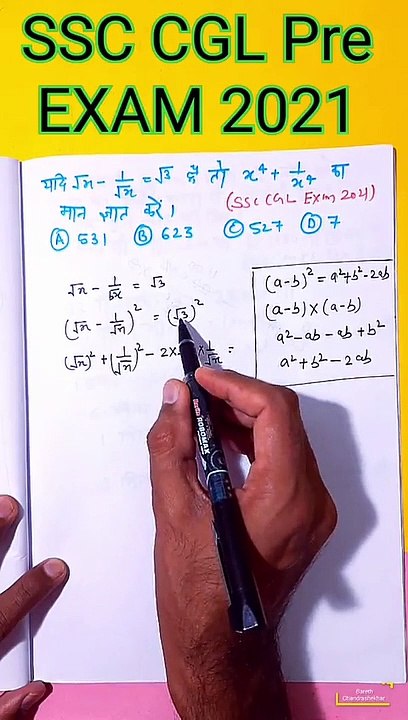 SSC CGL Pre
EXAM 2021
यदि √x - 1/√x = √3 है तो x⁴ + 1/x⁴ का
मान ज्ञात करें।
(SSC CGL Exam 2021)
Ⓐ 531 Ⓑ 623 Ⓒ 527 Ⓓ 7
√x - 1/√x = √3
(√x - 1/√x)² = (√3)²
(√x)² + (1/√x)² - 2× × 1/√x =
(a-b)² = a²+b²-2ab
(a-b)×(a-b)
a²-ab-ab+b²
a²+b²-2ab
ROBOMAX
Bareth
Chandrashekhar